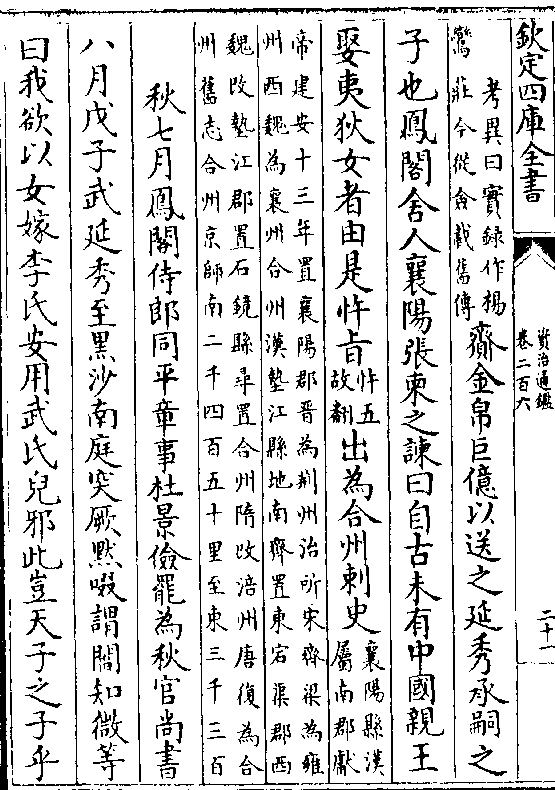 欽定四庫全書
資治通鑑
卷二百六
二十一
考異曰實録作楊
鸞莊今從僉載舊傳
齎金帛巨億以送之延秀承嗣之
子也鳳閣舍人襄陽張柬之諫曰自古未有中國親王
娶夷狄女者由是忤旨
忤五
故翻
出為合州刺史
襄陽縣漢
屬南郡獻
帝建安十三年置襄陽郡晉為荆州治所宋齊梁為雍
州西魏為襄州合州漢墊江縣地南齊置東宕渠郡西
魏改墊江郡置石鏡縣尋置合州隋改涪州唐復為合
州舊志合州京師南二千四百五十里至東三千三百
秋七月鳳閣侍郎同平章事杜景儉罷為秋官尚書
八月戊子武延秀至黑沙南庭突厥黙啜謂閻知微等
曰我欲以女嫁李氏安用武氏兒邪此豈天子之子乎